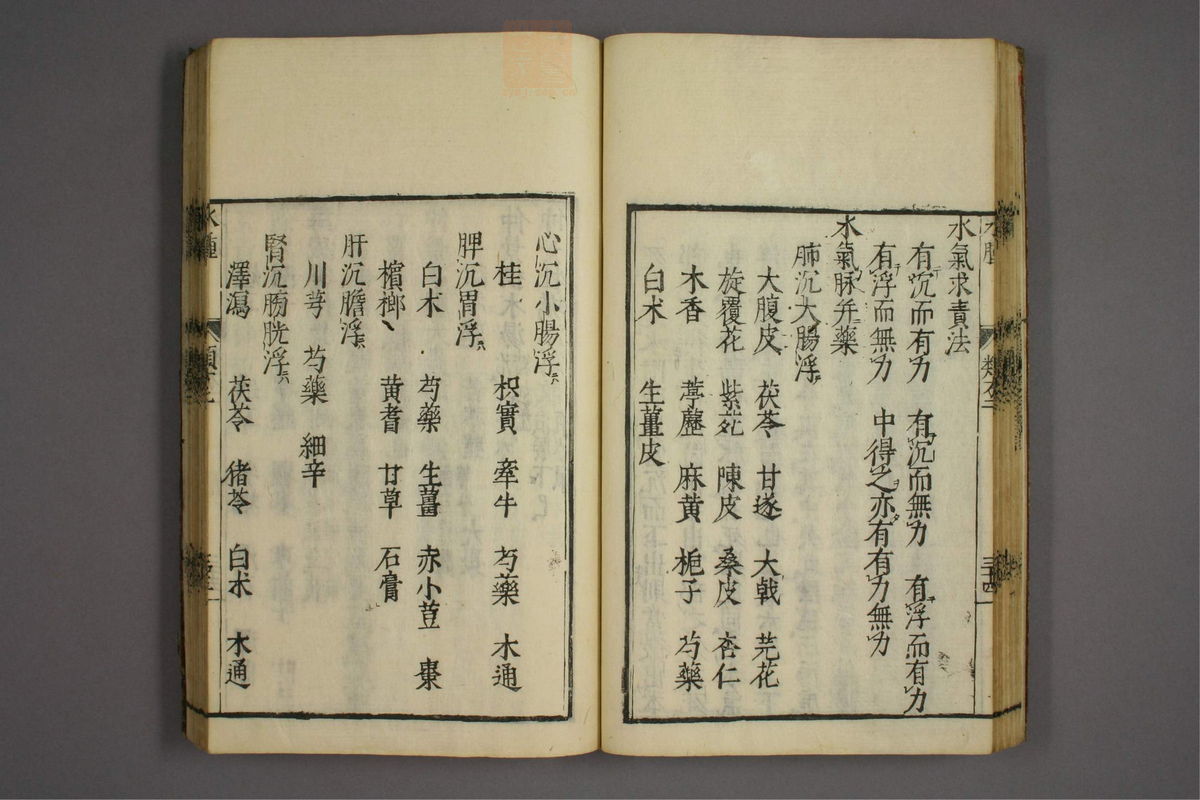 水氣求責法
有沉而有力　有沉而無力　有浮而有力
有浮而無力　中得之亦有有力無力
水氣脉并藥
肺沉大腸浮
大腹皮　茯苓　甘遂　大戟　芫花
旋覆花　紫菀　陳皮　桑皮　杏仁
木香　葶藶　麻黄　梔子　芍藥
白朮　生薑皮
心沉小腸浮
桂　枳實　牽牛　芍藥　木通
脾沉胃浮
白朮　芍藥　生薑　赤小荳　棗
檳榔　黄耆　甘草　石膏
肝沉膽浮
川芎　芍藥　細辛
腎沉膀胱浮
澤瀉　茯苓　猪苓　白朮　木通
水腫